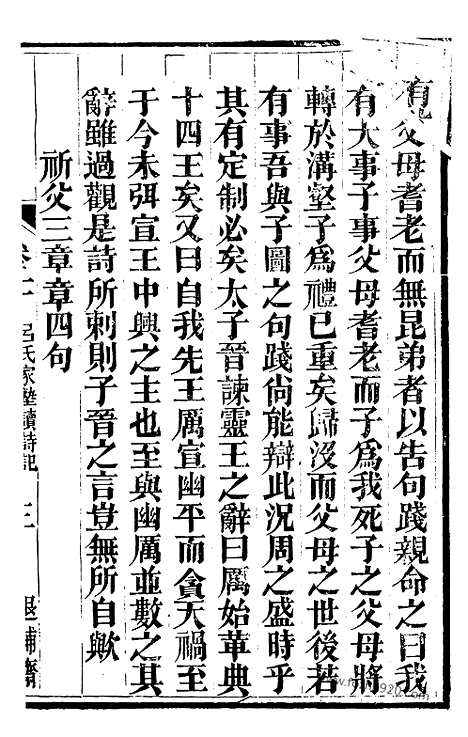 有父母耆老而無昆弟者以告句踐親命之曰我
有大事子事父母耆老而子爲我死子之父母將
轉於溝壑子爲禮已重矣歸沒而父母之世後若
有事吾與子圖之句踐尙能辯此況周之盛時乎
其有定制必矣太子晉諫靈王之辭曰厲始革典
十四王矣又曰自我先王厲宣幽平而貪天禍至
于今未弭宣王中興之主也至與幽厲並數之其
辭雖過觀是詩所刺則子晉之言豈無所自歟
祈父三章章四句
呂氏家塾讀詩記 三 退補齋